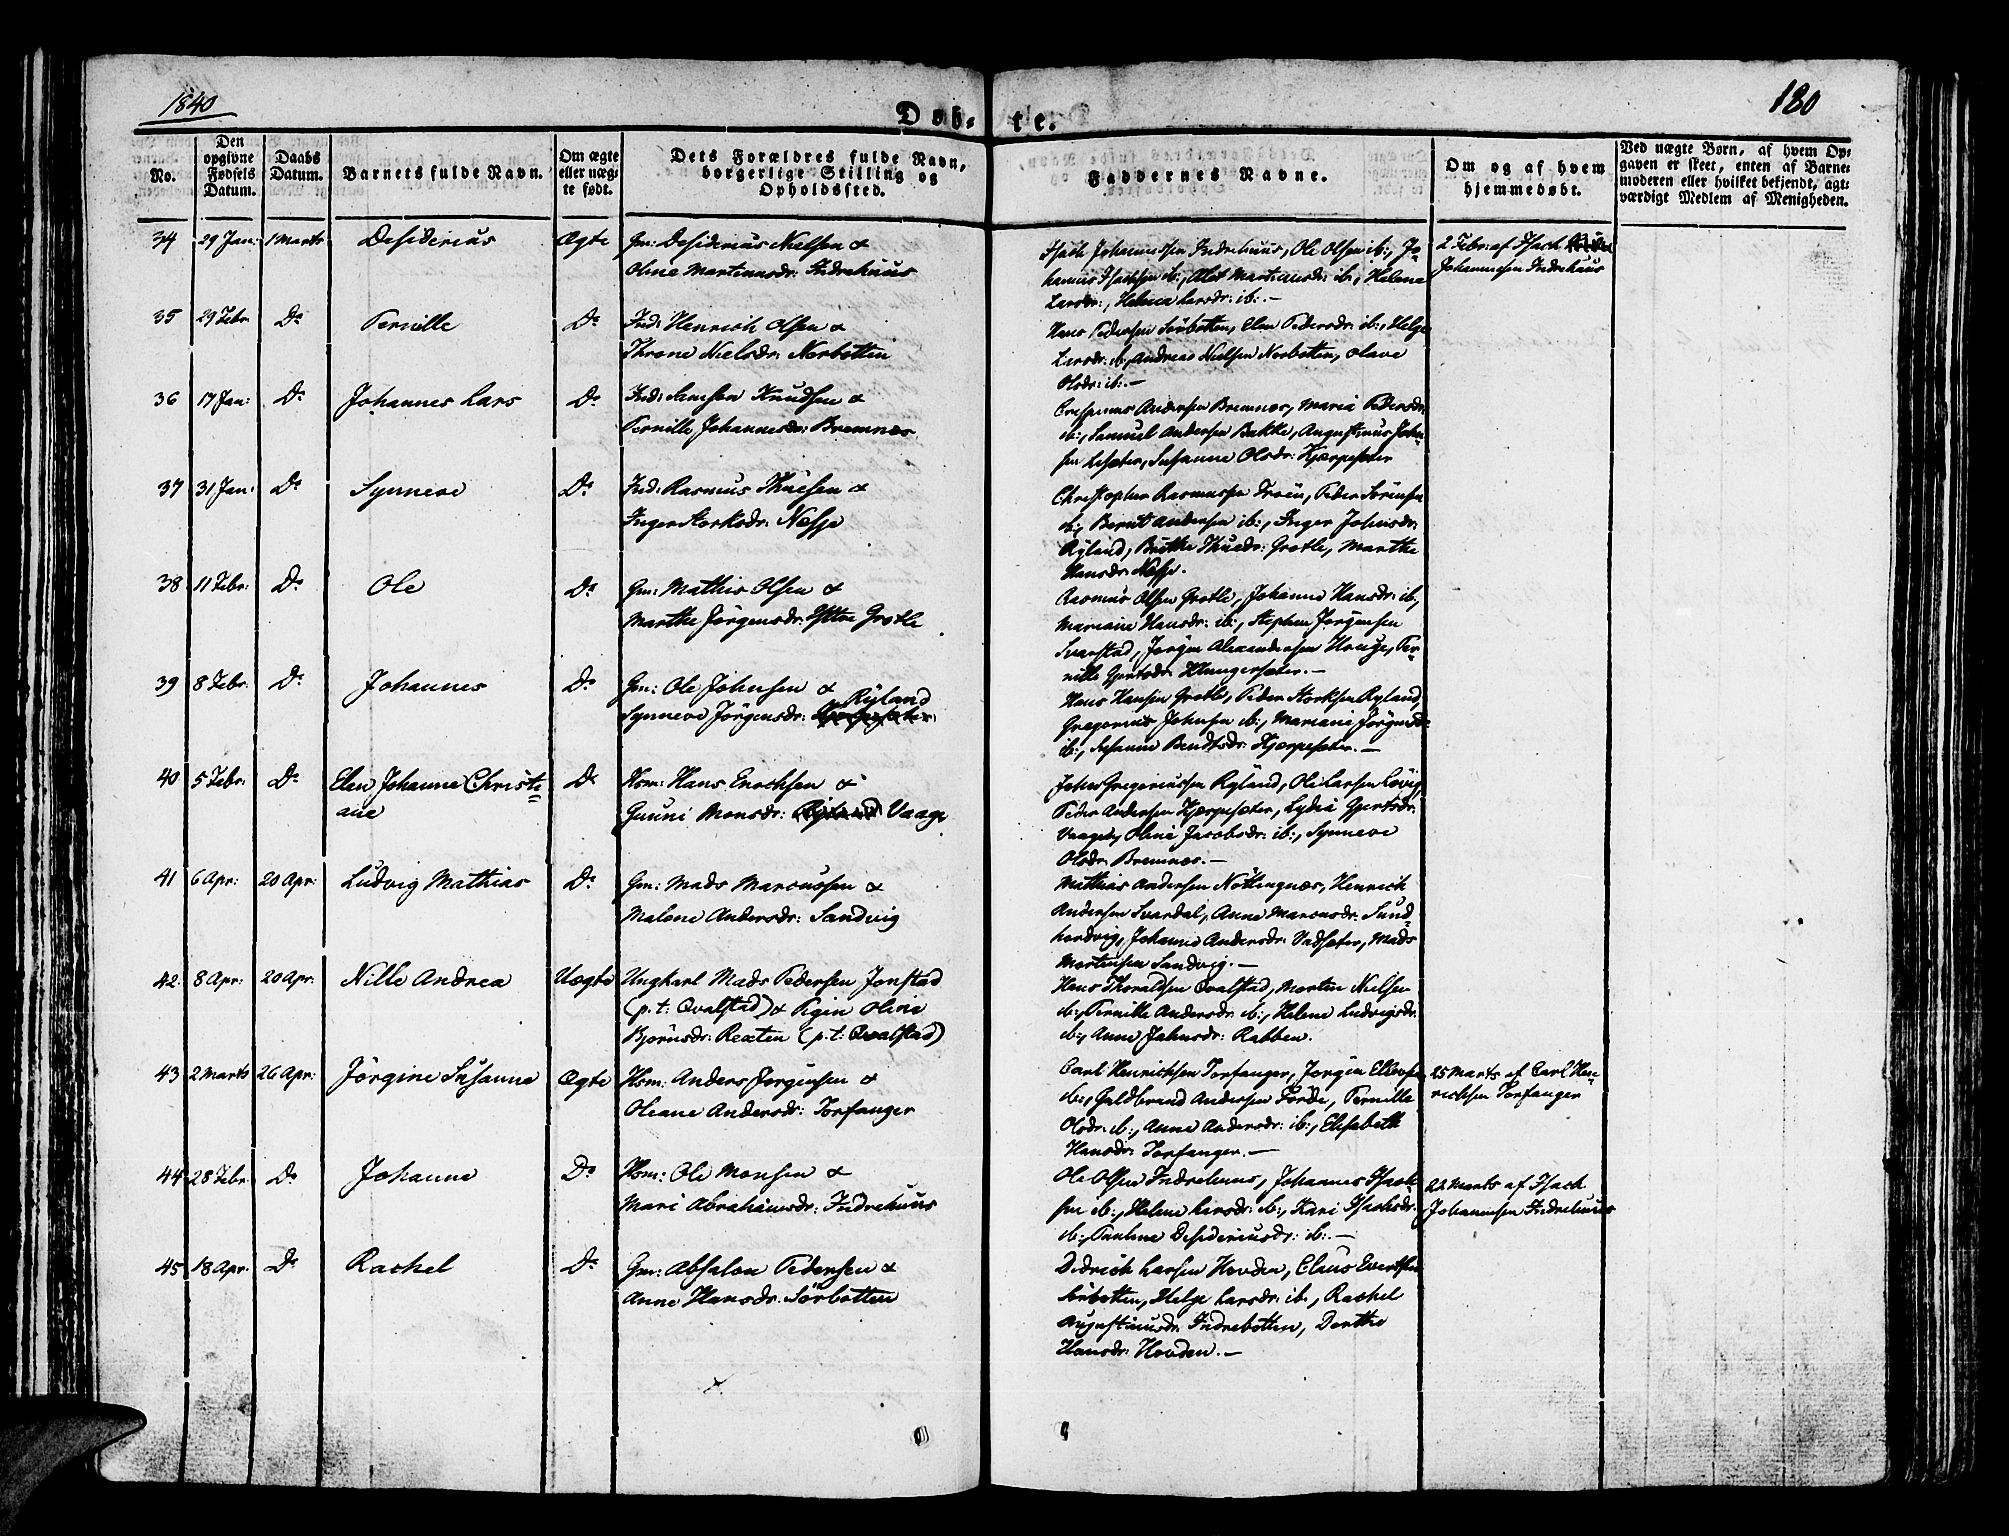 1840
Döb- te.
180
No.
Den opgivne Fødsels Datum.
Daabs Datum.
Barnets fulde Navn.
Om ægte eller uæg- te født.
Dets Forældres fulde Navn, borgerlige Stilling og Opholdssted.
Faddernes Navne.
Om og af hvem hjemmedøbt.
Ved uægte Børn, af hvem Op- gaven er skeet, enten af Barne- moderen eller hvilket bekjendt, agt- værdigt Medlem af Menigheden.
34 29 Jan: 1 Marts Desiderius Ægte Gm: Desiderius Nielsen &
Oline Martinusdr: Indrehuus
Isach Johannessen Indrehuus, Ole Olsen ib:, Jo-
hannes Isachsen ib:, Alet Martinusdr: ib:, Helene
Larsdr:, Helene Larsdr: ib:.-
2 Febr: af Isach
Johannesen Indrehuus
35 29 Febr. Do Pernille Do Ind: Henrich Olsen &
Throne Nielsdr: Norbotten
Hans Pedersen Sörbotten, Elen Pedersdr: ib:, Helge
Larsdr: ib, Andreas Nielsen Norbotten, Olave
Olsdr: ib:.-
36 17 Jan: Do Johannes Lars Do Ind: Samson Knudsen &
Pernille Johannesdr: Bremnæs
Crispinus Andersen Bremnes, Maria Pedersdr:
ib:, Samuel Andersen Bakke, Augustinus John-
sen Lisæter, Susanne Olsdr: Kjærpesæter
37 31 Jan: Do Synneve Do Ind: Rasmus Thuesen &
Inger Storksdr: Nesse
Christopher Rasmussen Troen, Peder Sörensen
ib:, Bernt Andersen ib:, Inger Johnsdr:
Ryland, Britthe Thuesdr: Grotle, Marthe
Hansdr: Nesse.
38 11 Febr: Do Ole Do Gm: Mathis Olsen &
Marthe Jörgensdr: Yttre Grotle
Rasmus Olsen Grotle, Johanne Hansdr: ib,
Mariane Hansdr: ib:, Stephen Jörgensen
Svarstad, Jörgen Alexandersen Houge, Per-
nille Gjertsdr: Klungersæter.-
39 8 Febr: Do Johannes Do Gm: Ole Johnsen &
Synneve Jörgensdr: Ryland
Hans Hansen Grotle, Peder Storksen Ryland,
Gregorius Johnsen ib:, Mariane Jörgensdr:
ib:, Susanne Bendtsdr: Kjærpesæter.-
40 5 Febr: Do Elen Johanne Christi-
ane Do Hsm: Hans Enochsen &
Gunni Monsdr: Vaage
John Gregoriussen Ryland, Ole Larsen Lövig,
Peder Andersen Kjærpesæter, Lydia Gjertsdr:
Vaage, Oline Jacobsdr: ib:, Synneve
Olsdr: Bremnes.-
41 6 Apr: 20 Apr: Ludvig Mathias Do Gm: Mads Marcussen &
Malene Andersdr: Sandvig
Mathias Andersen Nöttingnæs, Henrich
Andersen Svardal, Anne Marcusdr: Sund-
hordvig, Johanne Andersdr: Vadsæter, Mads
Mortensen Sandvig.-
42 8 Apr: 20 Apr: Nille Andrea Uægte Ungkarl Mads Pedersen Jonstad
(p.t: Qvalstad) & Pigen Oline
Björnsdr: Rexten (p.t: Qvalstad)
Hans Thoraldsen Qvalstad, Morten Nielsen
ib:, Pernille Andersdr: ib:, Helene Ludvigsdr:
ib:, Anne Jahnsdr: Rabben.
43 2 Marts 26 Apr: Jörgine Susanne Ægte Hsm: Anders Jörgensen &
Oleane Andersdr: Torfanger
Carl Henrichsen Torfanger, Jörgen Ellevsen
ib:, Guldbrand Andersen Förde, Pernille
Olsdr: ib:, Anne Andersdr: ib:, Elisabeth
Hansdr: Torfanger.-
25 Marts af Carl Hen-
richsen Torfanger
44 28 Febr. Do Johanne Do Hsm: Ole Monsen &
Mari Abrahamsdr: Indrehuus
Ole Olsen Indrehuus, Johannes Isach-
sen ib:, Helene Larsdr: ib:, Kari Isachsdr:
ib:, Pauline Desideriusdr: ib:.-
22 Marts af Isach
Johannesen Indrehuus
45 18 Apr. Do Rachel Do Gm: Absalon Pedersen &
Anne Hansdr: Sörbotten
Didrich Larsen Hovden, Claus Evertsen
Sörbotten, Helge Larsdr: ib., Rachel
Augustinusdr: Indrebotten, Dorthe
Hansdr: Hovden.-